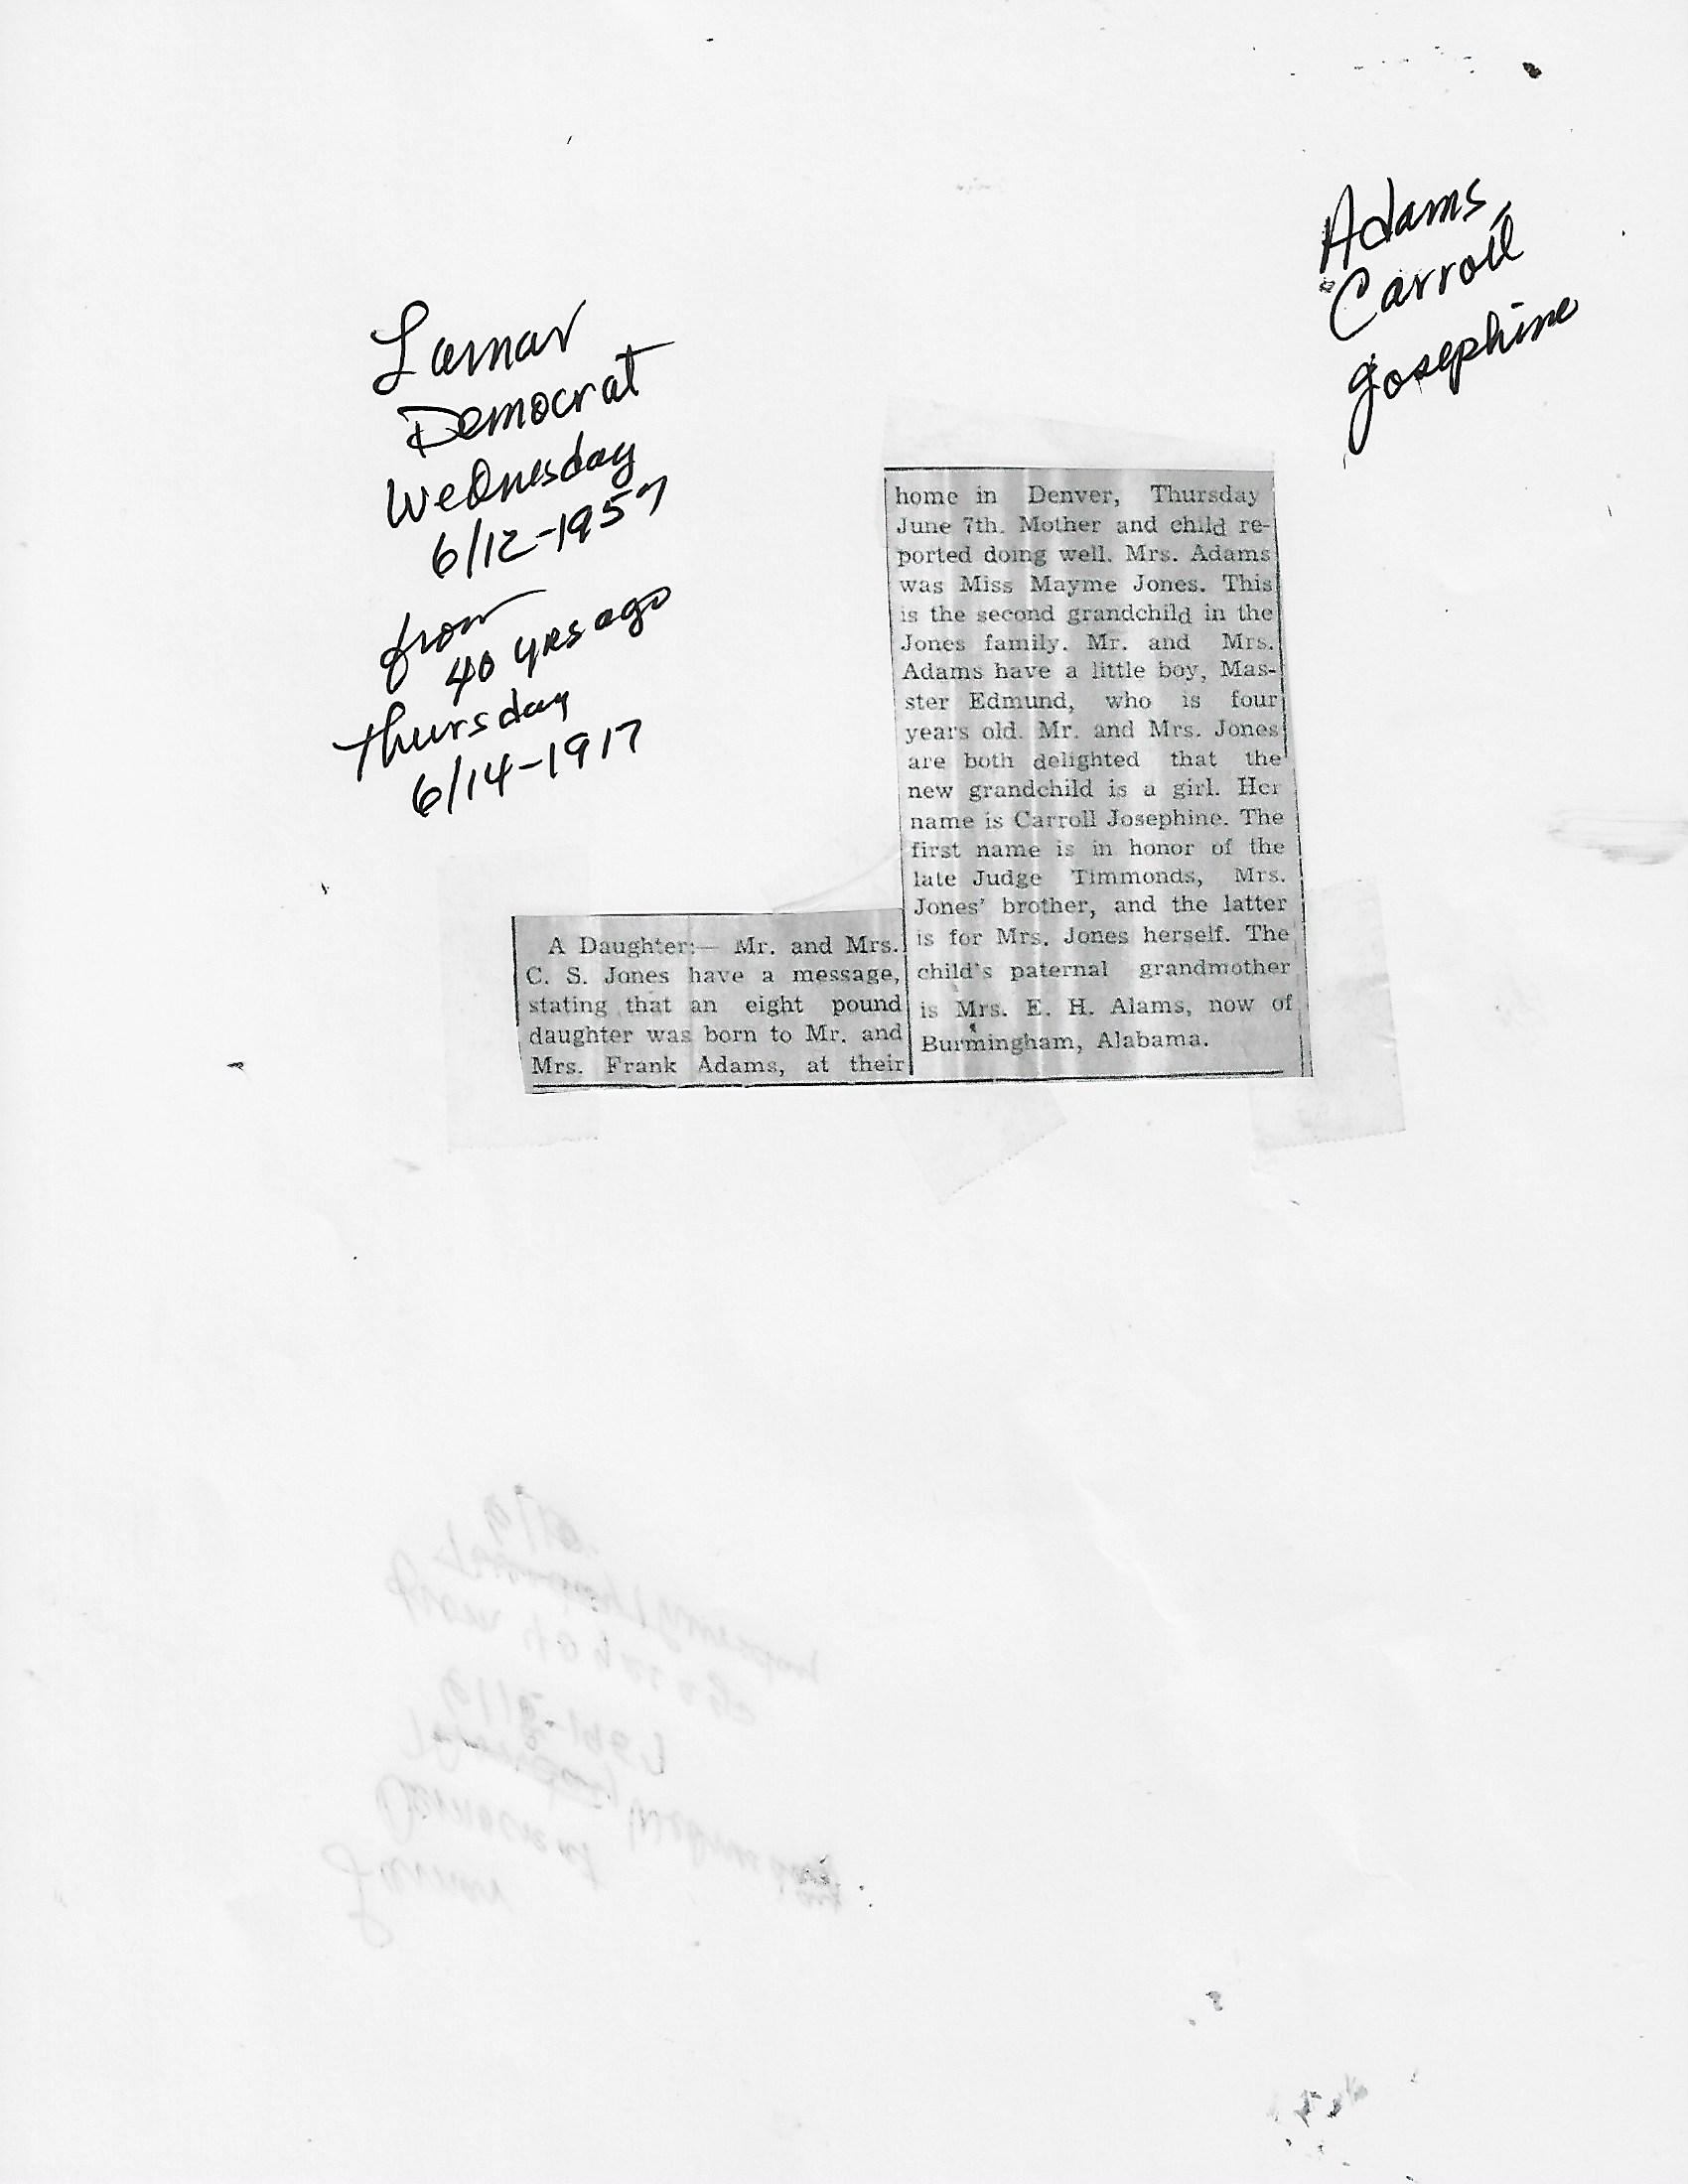 Adams
Carroll
Josephine
Lamar
Democrat
Wednesday
6/12-1957
from
40 yrs ago
Thursday
6/14-1917
A Daughter:— Mr. and Mrs.
C. S. Jones have a message,
stating that an eight pound
daughter was born to Mr. and
Mrs. Frank Adams, at their
home in Denver, Thursday
June 7th. Mother and child re-
ported doing well. Mrs. Adams
was Miss Mayme Jones. This
is the second grandchild in the
Jones family. Mr. and Mrs.
Adams have a little boy, Mas-
ster Edmund, who is four
years old. Mr. and Mrs. Jones
are both delighted that the
new grandchild is a girl. Her
name is Carroll Josephine. The
first name is in honor of the
late Judge Timmonds, Mrs.
Jones' brother, and the latter
is for Mrs. Jones herself. The
child's paternal grandmother
is Mrs. E. H. Alams, now of
Burmingham, Alabama.